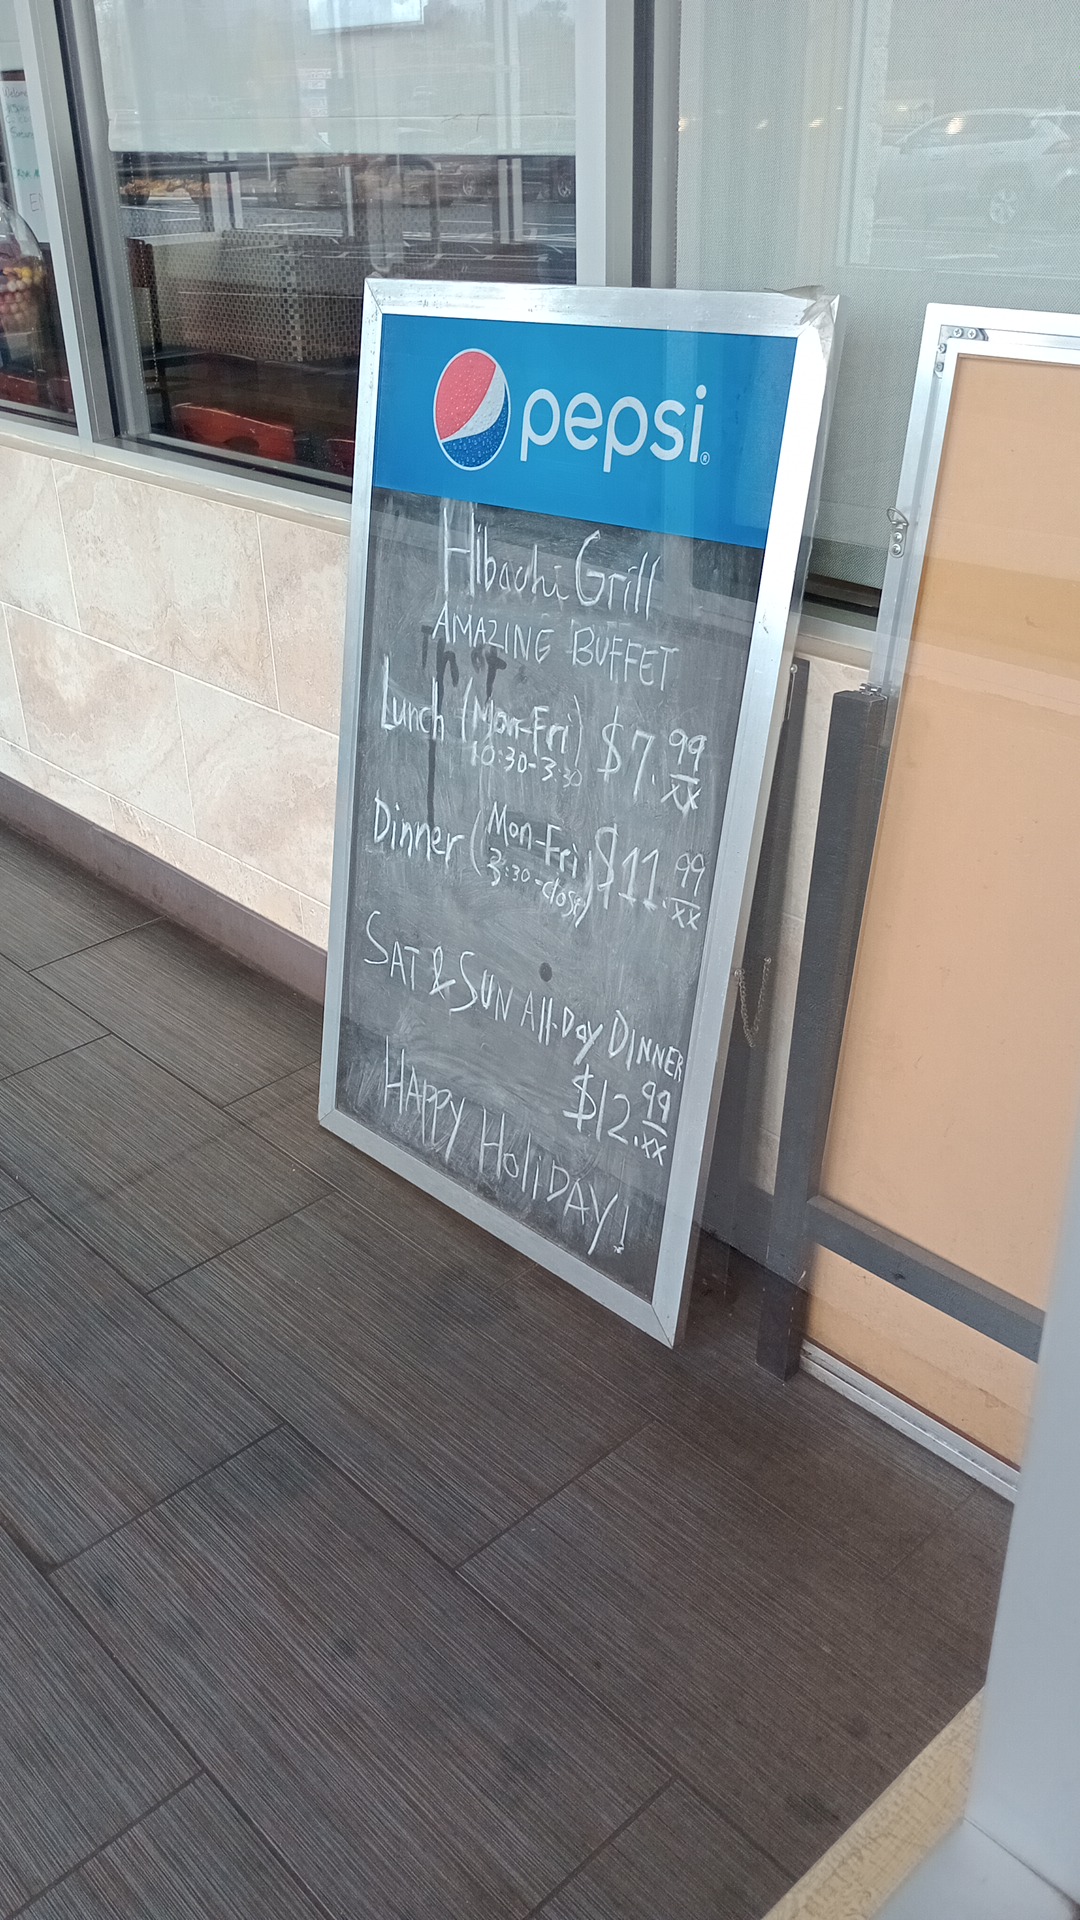 pepsi®
Hibachi Grill
AMAZING BUFFET
Lunch (Mon-Fri) $7.99
10:30-3:30 xx
Dinner (Mon-Fri $11.99
3:30-close) xx
SAT & SUN All-Day DINNER
$12.99
xx
HAPPY HoliDAY!